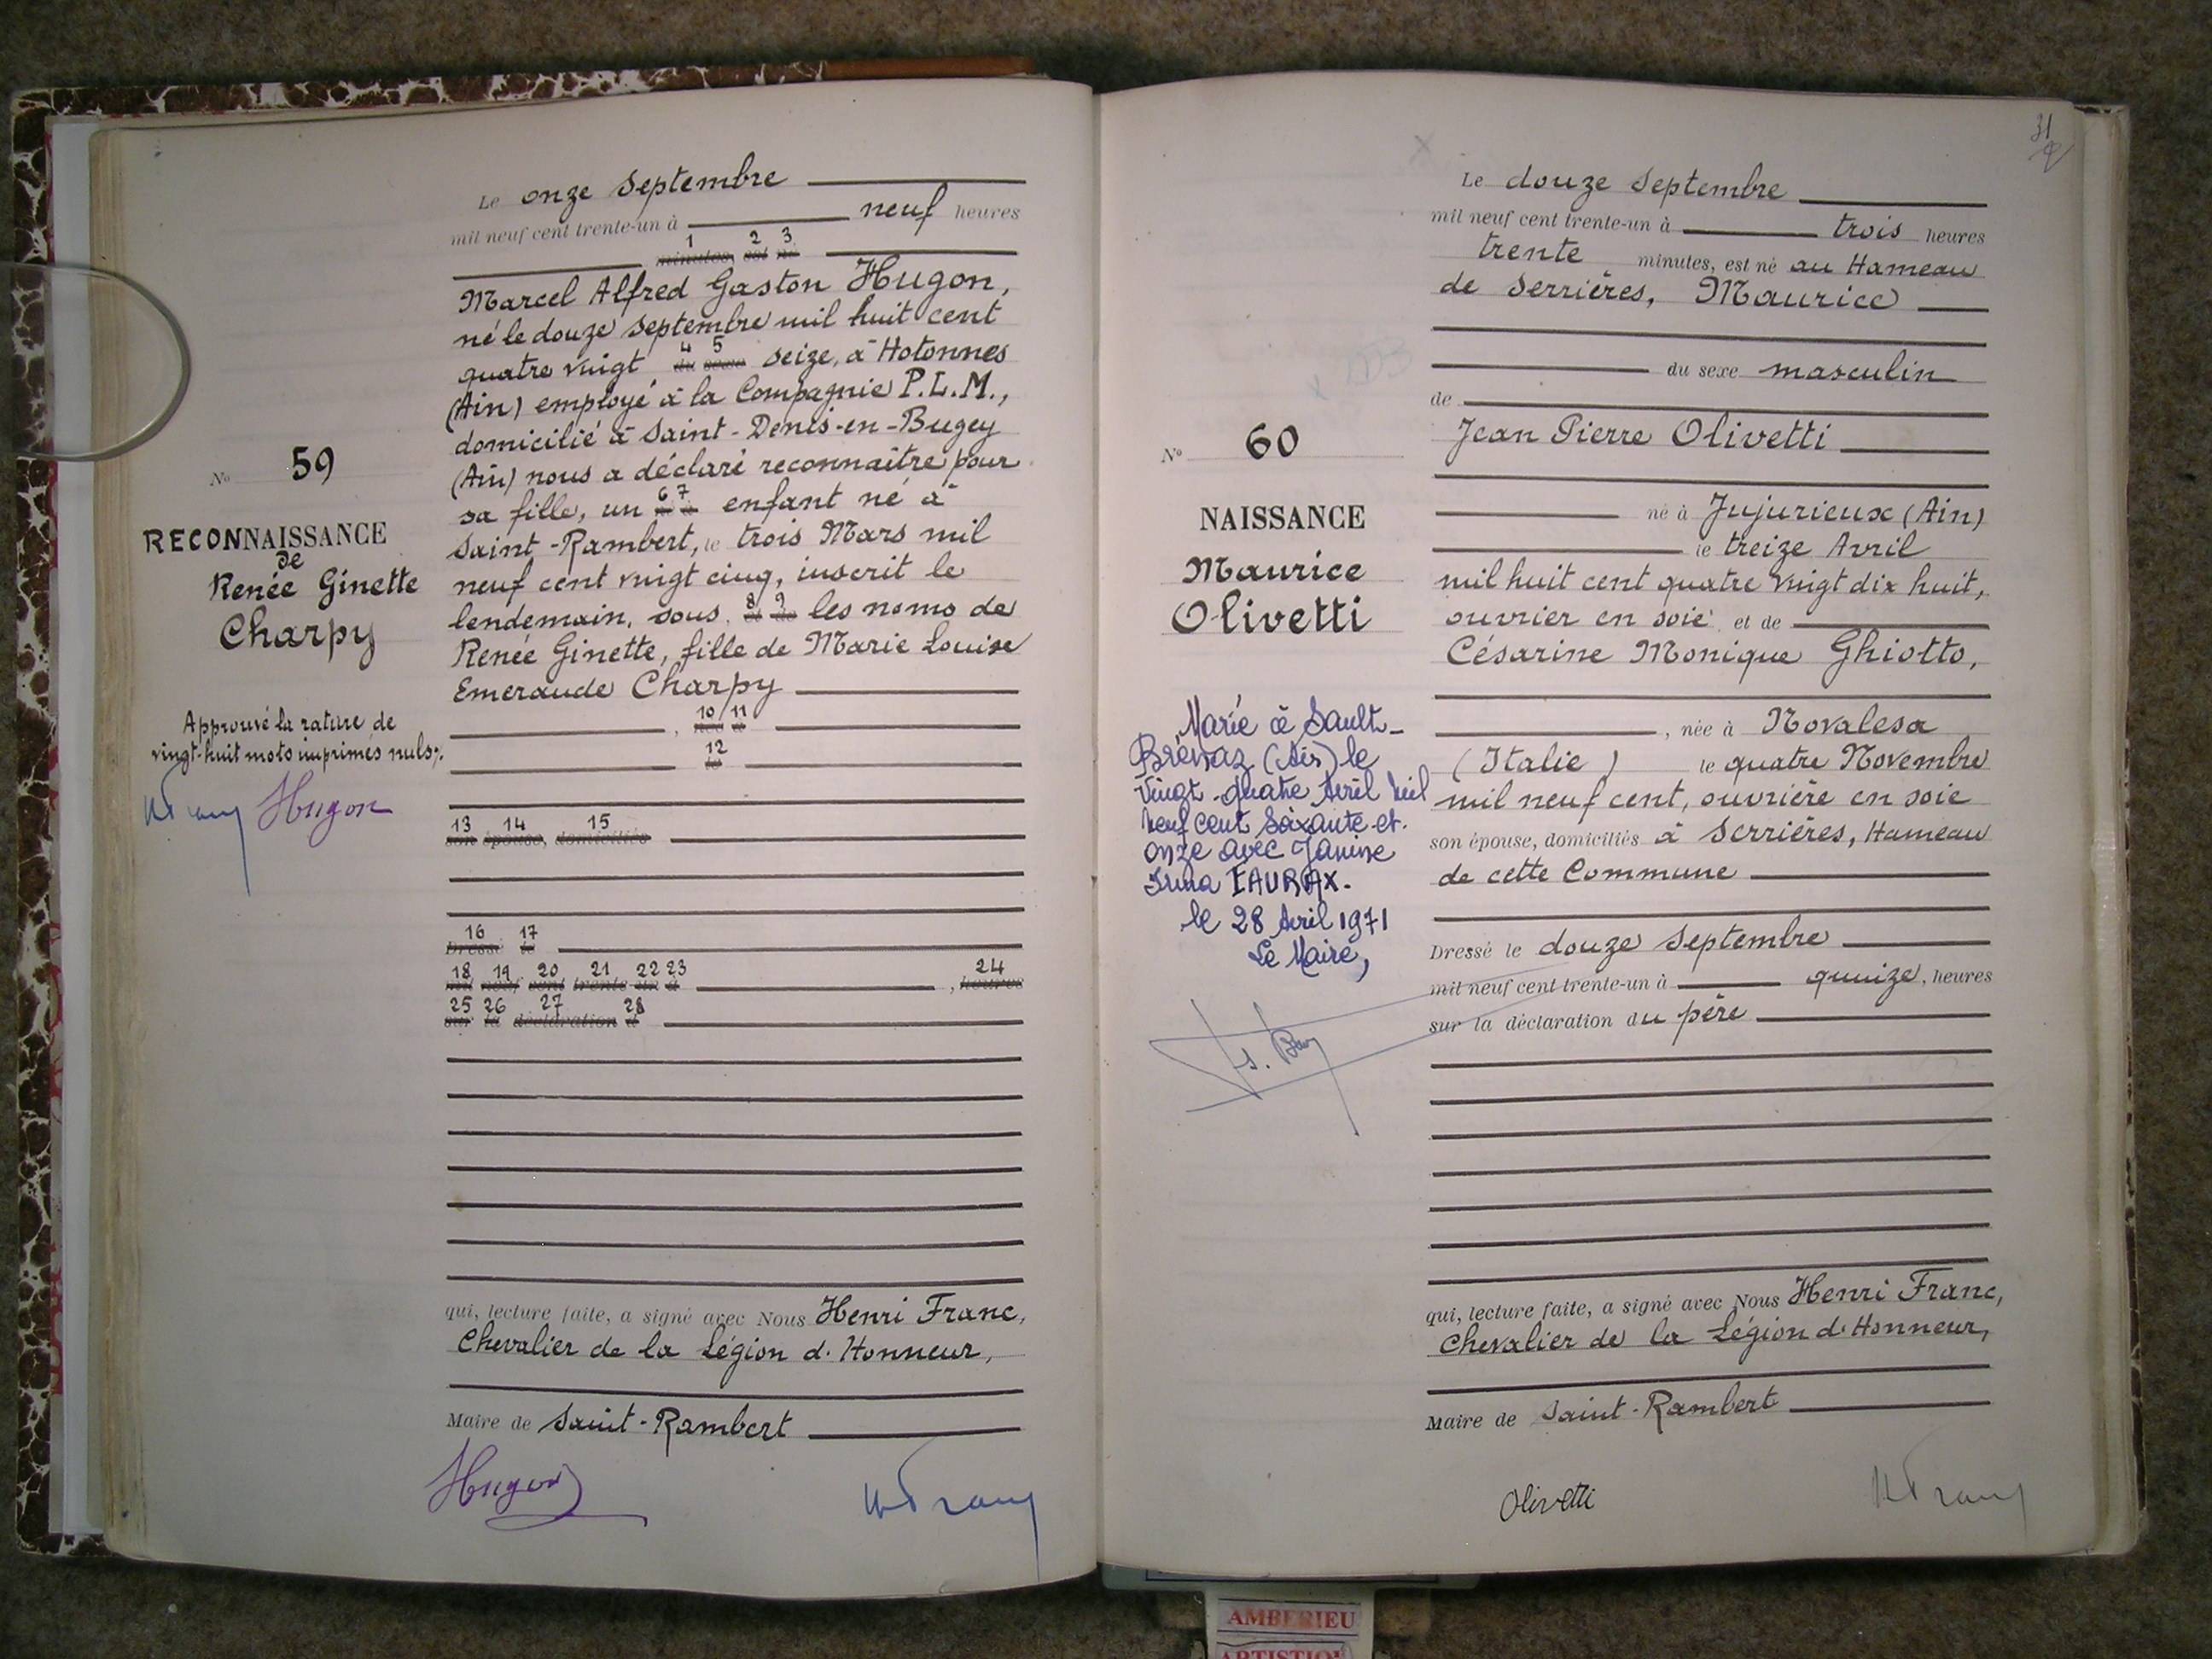 Le onze Septembre
mil neuf cent trente-un à neuf heures
1 2 3
minutes, est né
Marcel Alfred Gaston Hugon,
né le douze Septembre mil huit cent
4 5
quatre vingt du sexe seize, à Hotonnes
(Ain) employé à la Compagnie P.L.M.,
domicilié à Saint-Denis-en-Bugey
(Ain) nous a déclaré reconnaitre pour
6 7
sa fille, un enfant né à
Saint-Rambert, le trois Mars mil
neuf cent vingt cinq, inscrit le
8 9
lendemain, sous les noms de
Renée Ginette, fille de Marie Louise
Emeraude Charpy
10 11
12
le
13 14 15
son épouse, domiciliés
16 17
Dressé le
18 19 20 21 22 23 24
mil neuf cent trente-un à , heures
25 26 27 28
sur la déclaration d
qui, lecture faite, a signé avec Nous Henri Franc,
Chevalier de la Légion d'Honneur,
Maire de Saint-Rambert
Hugon
No 59
RECONNAISSANCE
De
Renée Ginette
Charpy
Approuvé la rature de
vingt-huit mots imprimés nuls.
Hugon
31
Le douze Septembre
mil neuf cent trente-un à trois heures
trente minutes, est né au Hameau
de Serrières, Maurice
du sexe masculin
de
Jean Pierre Olivetti
né à Jujurieux (Ain)
le treize Avril
mil huit cent quatre vingt dix huit,
ouvrier en soie et de
Césarine Monique Ghiotto,
, née à Novalesa
(Italie) le quatre Novembre
mil neuf cent, ouvrière en soie
son épouse, domiciliés à Serrières, Hameau
de cette Commune
Dressé le douze Septembre
mil neuf cent trente-un à quinze, heures
sur la déclaration du père
qui, lecture faite, a signé avec Nous Henri Franc,
Chevalier de la Légion d'Honneur,
Maire de Saint-Rambert
Olivetti
No 60
NAISSANCE
Maurice
Olivetti
Marié à Sault-
Brénaz (Ain) le
Vingt-quatre Avril mil
neuf cent Soixante-et-
onze avec Janine
Irma FAURAX.
le 28 Avril 1971
Le Maire,
AMBERIEU